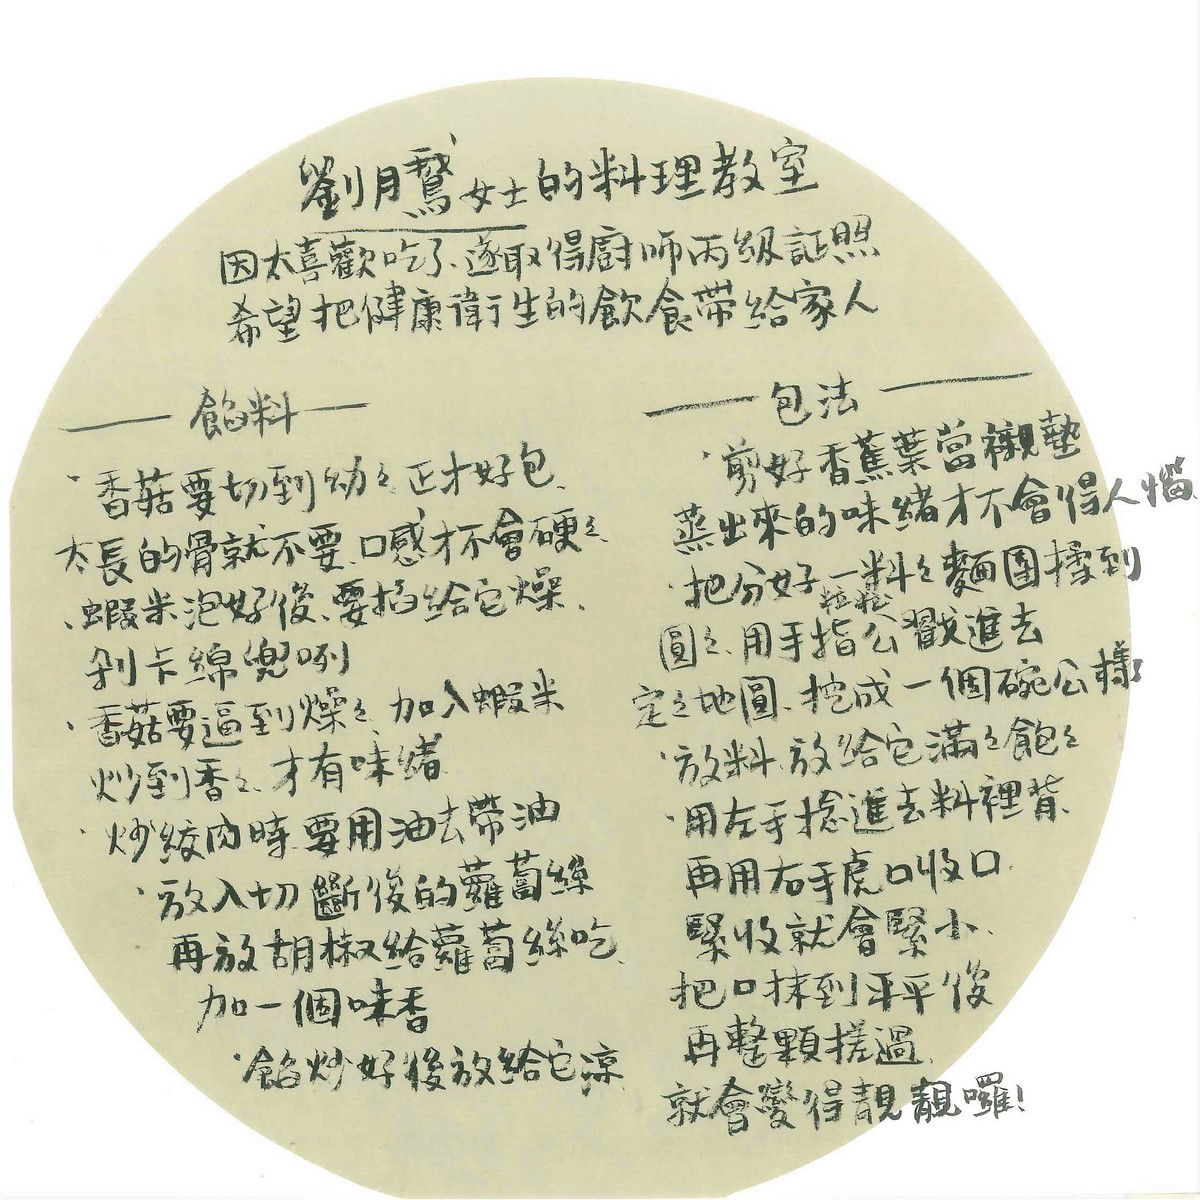 劉月鵞女士的料理教室
因太喜歡吃了、遂取得廚師丙級証照
希望把健康衛生的飲食帶給家人
餡料
香菇要切到幼々正才好包、
太長的骨就不要、口感才不會硬々
蝦米泡好後、要掐給它燥、
剁卡綿兜咧
香菇要逼到燥々、加入蝦米
炒到香々、才有味緒
炒絞肉時、要用油去帶油
放入切斷後的蘿蔔絲
再放胡椒給蘿蔔絲吃、
加一個味香
餡炒好後放給它涼
包法
剪好香蕉葉當襯墊
蒸出來的味緒才不會得人惱
把分好一粒粒料々麵團揉到
圓々、用手指公戳進去
定々地圓、挖成一個碗公樣
放料、放給它滿々飽々
用左手捻進去料裡背、
再用右手虎口收口
緊收就會緊小、
把口抹到平平後
再整顆搓過
就會變得靚靚囉!